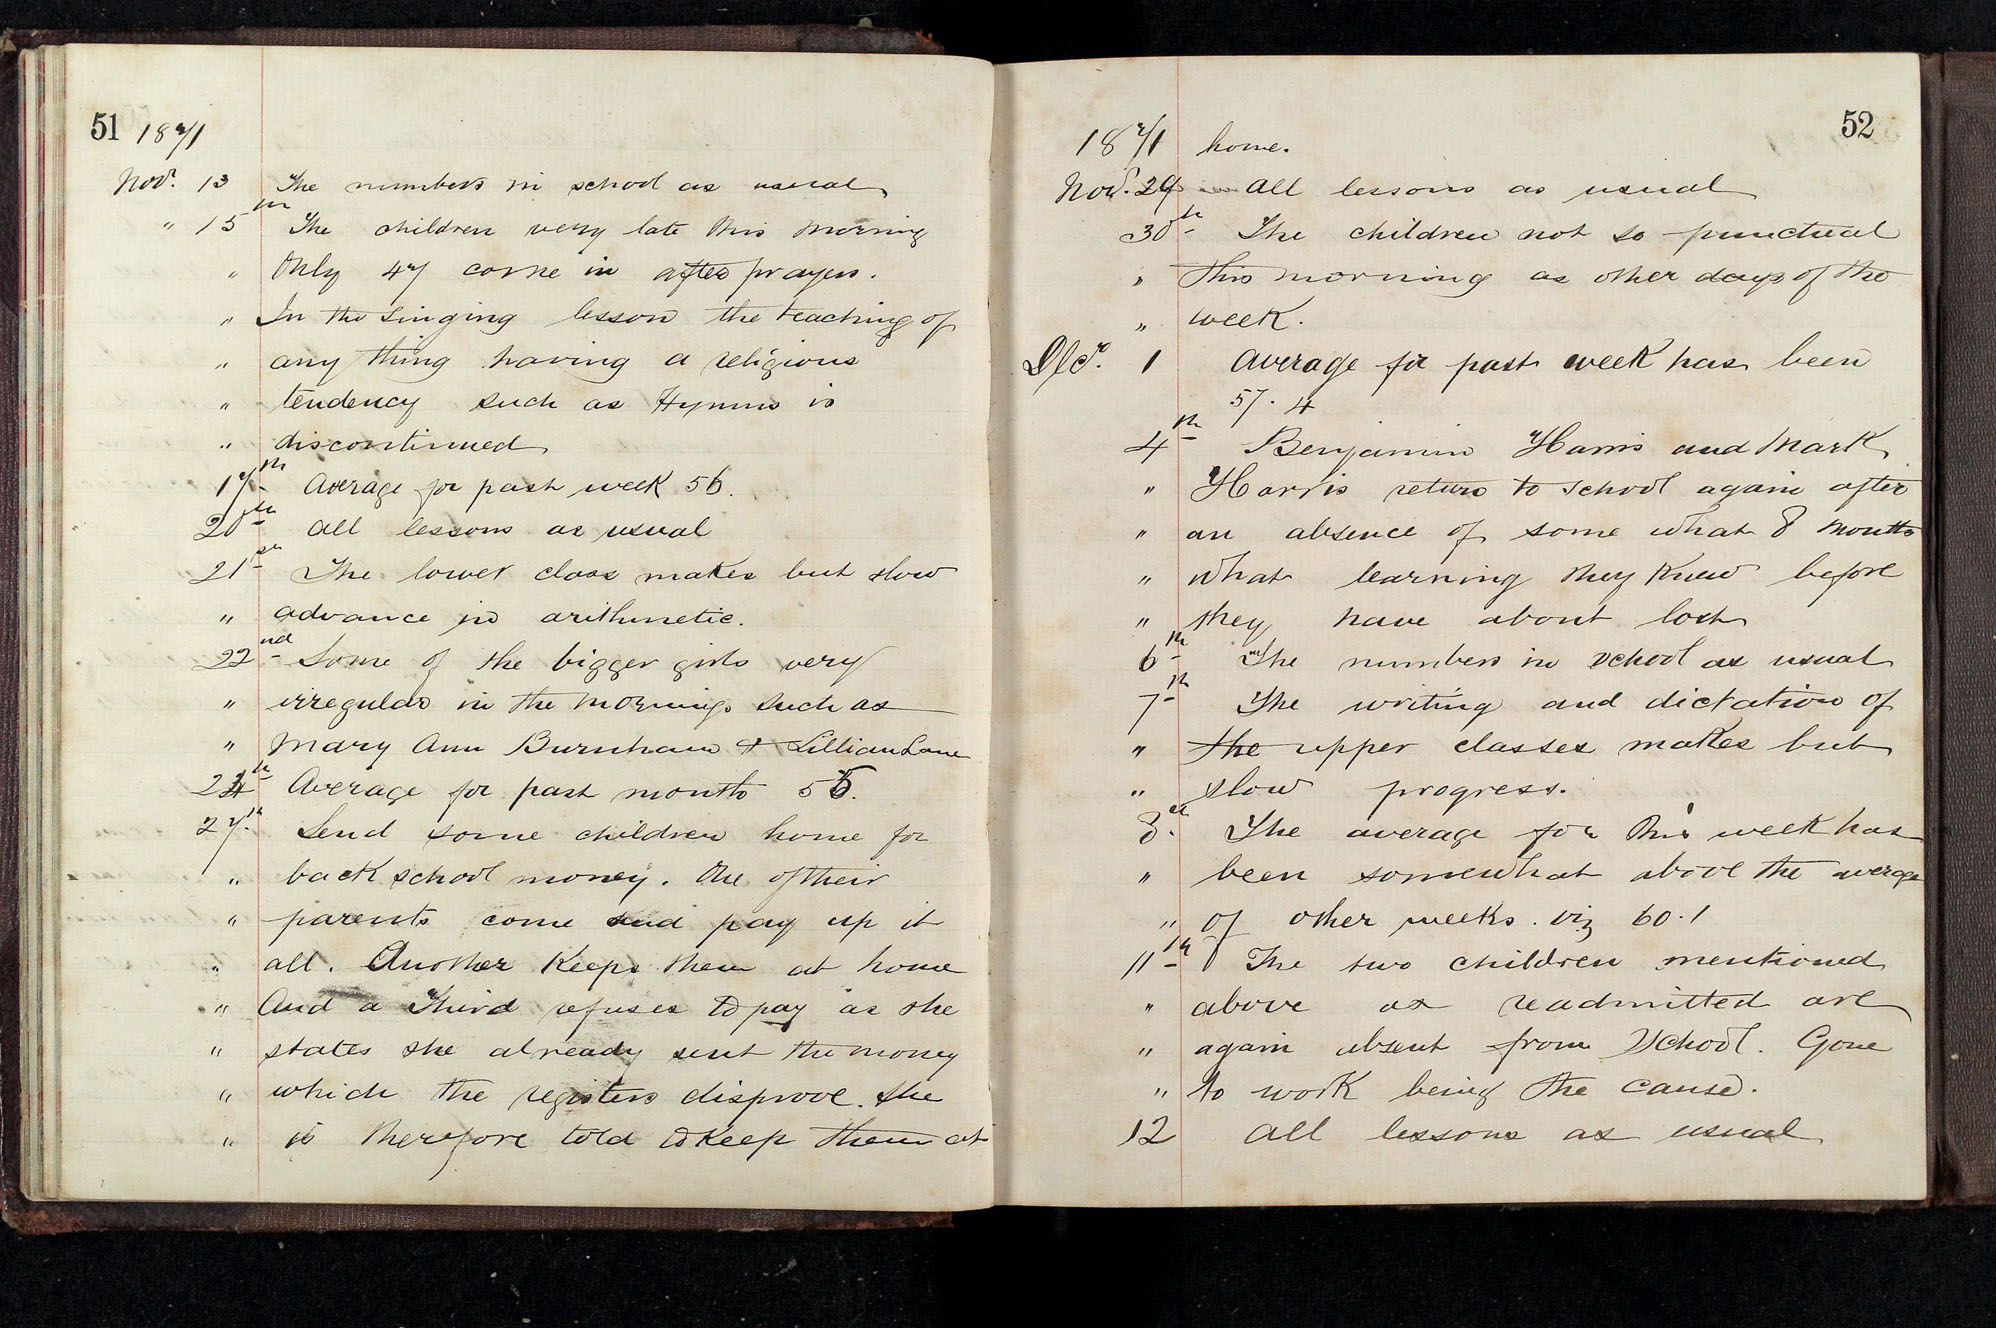 51 1871
Nov. 13 The numbers in school as usual
" 15th The children very late this morning
" Only 47 come in after prayers.
" In the singing lesson the teaching of
" any thing having a religious
" tendency such as Hymns is
" discontinued
17th Average for past week 56.
20th All lessons as usual
21st The lower class makes but slow
" advance in arithmetic.
22nd Some of the bigger girls very
" irregular in the mornings such as
" Mary Ann Burnham & Lillian Lane
24th Average for past month 55.
27th Send some children home for
" back school money. One of their
" parents come and pay up it
" all. Another Keeps them at home
" And a Third refuses to pay as she
" states she already sent the money
" which the registers disprove. She
" is therefore told to Keep them at
52
1871 home.
Novr. 29 All lessons as usual
30th The children not so punctual
" this morning as other days of the
" week.
Decr. 1 Average for past week has been
57.4
4th Benjamin Harris and Mark
" Harris return to school again after
" an absence of some what 8 months
" what learning they Knew before
" they have about lost
6th The numbers in school as usual
7th The writing and dictation of
" the upper classes makes but
" slow progress.
8th The average for this week has
" been somewhat above the average
" of other weeks. viz 60.1
11th The two children mentioned
" above as readmitted are
" again absent from School. Gone
" to work being the cause.
12 All lessons as usual